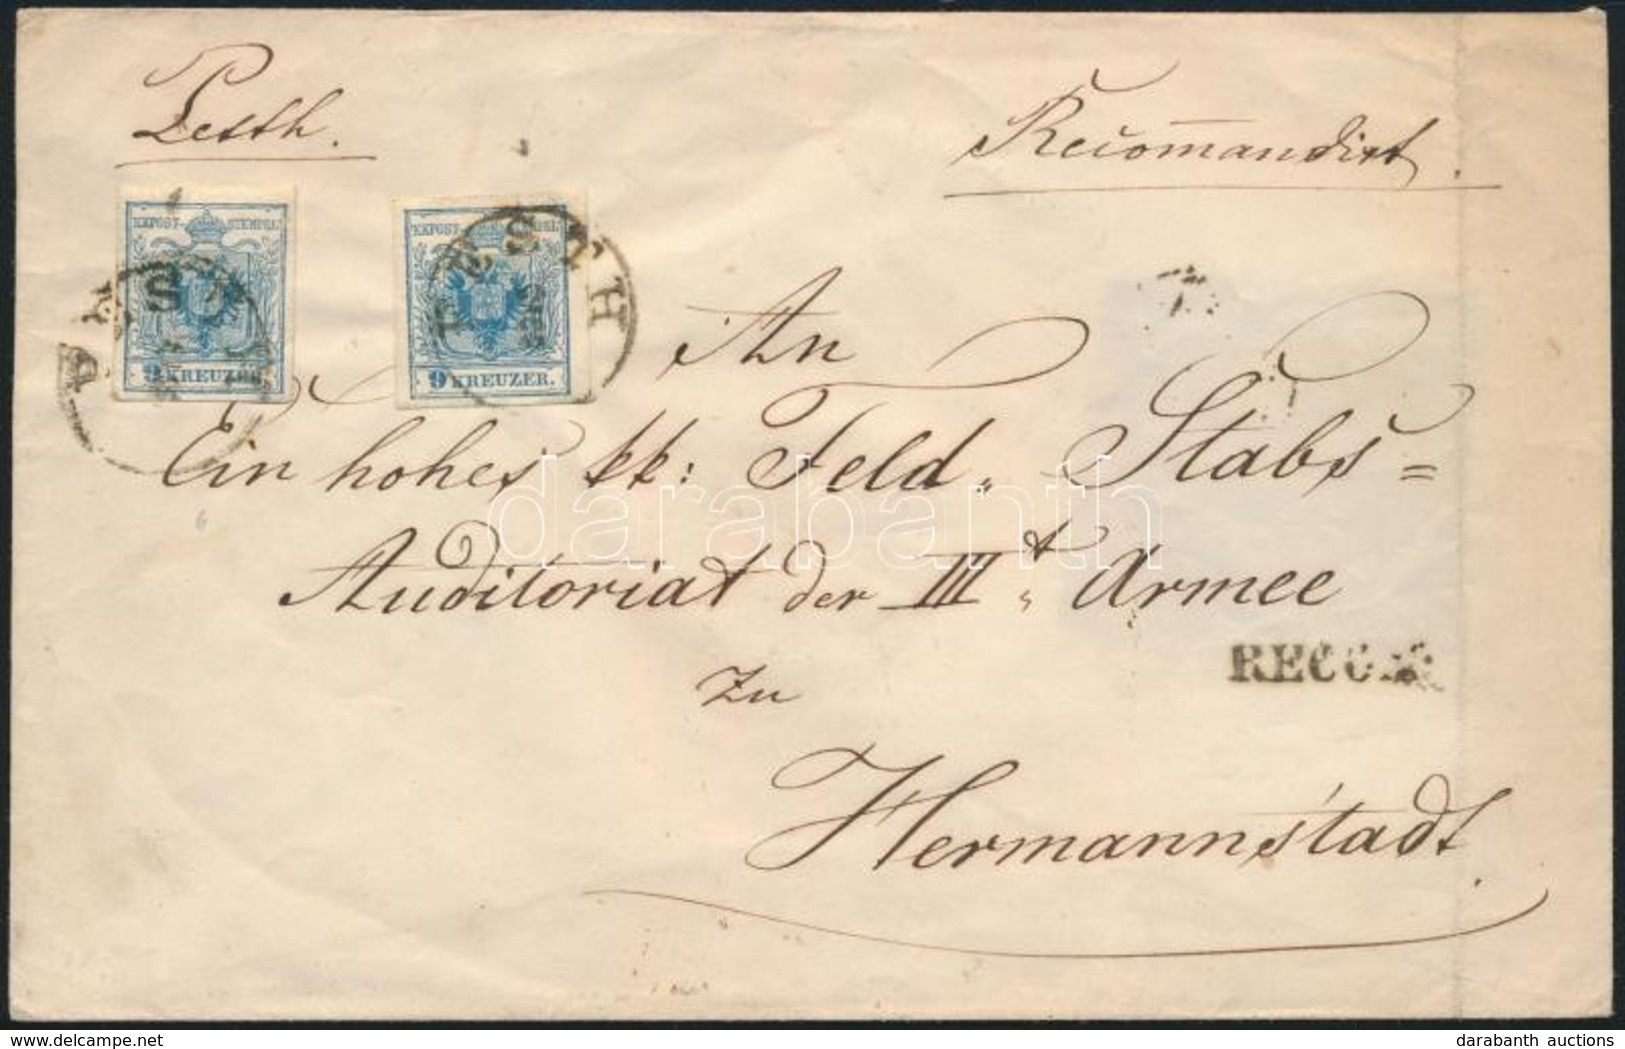 Pesth.
Recom̄andirt.
KKPOST-STEMPEL
9 KREUZER.
PESTH
KKPOST-STEMPEL
9 KREUZER.
PESTH
An
Ein hohes kk: Feld„ Stabs=
Auditoriat der IIIt„ Armee
zu
RECOM
Hermannstadt.
6
darabanth
www.delcampe.net
darabanth auctions